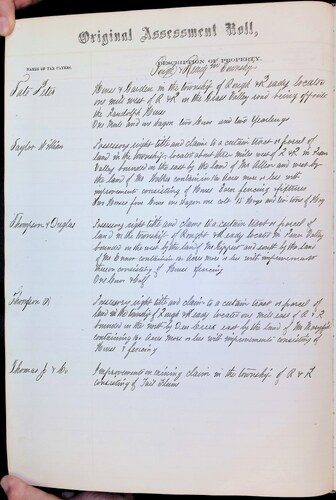 Original Assessment Roll,
NAMES OF TAX PAYERS.
DESCRIPTION OF PROPERTY.
Rough & Ready Township
Tate Peter
House & Garden in the township of Rough & Ready located
one mile west of R & R on the Grass Valley road being opposite
the Randolph House
One Mule and one Wagon two Horses and two Yearlings
Taylor William
Possessory right title and claim to a certain tract or parcel of
land in the township located about three miles west of R & R in Penn
Valley bounded on the east by the land of and west by
the land of containing acres more or less with
improvements consisting of House Barn fencing
Horses one Wagon one 15 Hogs and ten tons of Hay
Thompson & Douglas
Possessory right title and claim to a certain tract or parcel of
land in the township of Rough & Ready located in Penn Valley
bounded on the west by the land of and south by the land
of containing acres more or less with improvements
thereon consisting of House fencing
One Cow & Calf
Thompson
Possessory right title and claim to a certain tract or parcel of
land in the township of Rough & Ready located one mile east of R & R
bounded on the north by Deer Creek east by the land of
containing acres more or less with improvements consisting of
House & fencing
Thomas J & Co
Improvements on mining claim in the township of R & R
consisting of